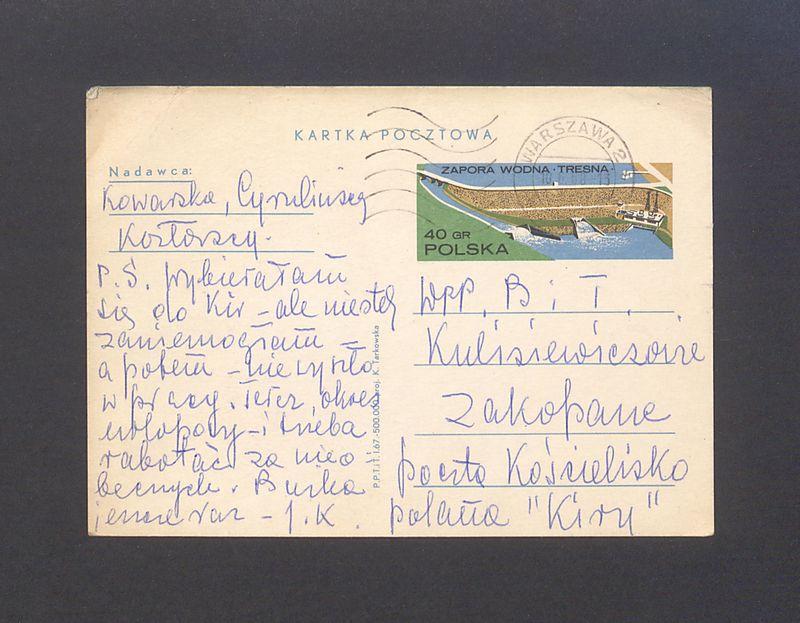 KARTKA POCZTOWA
WARSZAWA 2
Nadawca:
Kowarska, Cyrulińscy
Kozłowscy.
ZAPORA WODNA · TRESNA
40 GR
POLSKA
P.S. Wybierałam
się do Kir - ale niestety
zaniemogłam -
a potem - nie było
w pracy. Teraz, okres
urlopowy - i trzeba
rabotać za nieo-
becnych. Buźka
jeszcze raz - J.K.
P.P.T.iT. I.67.-500.000 proj. K. Tarkowska
WPP. B i T.
Kulisiewiczowie
Zakopane
poczta Kościelisko
polana "Kiry"